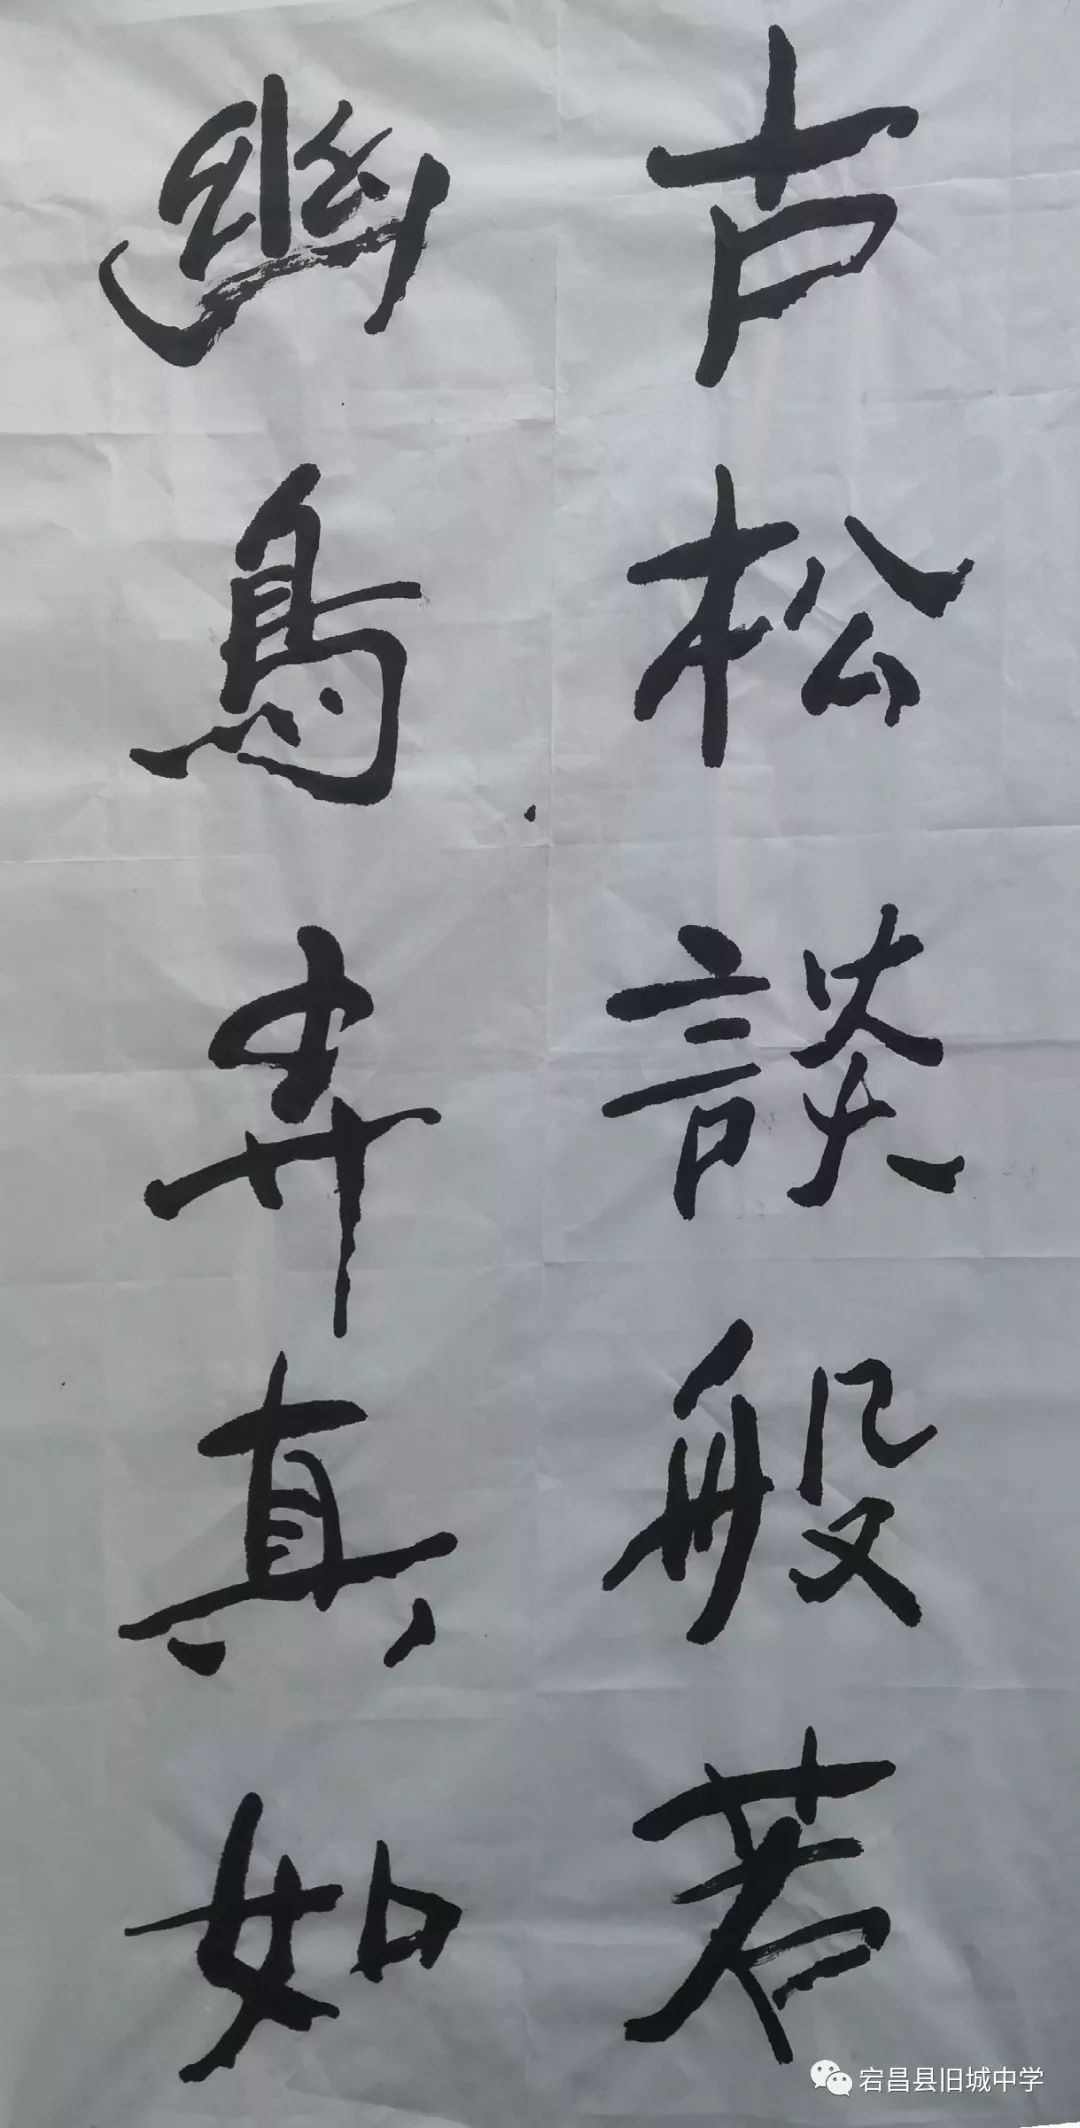 古松談般若
幽鳥弄真如
宕昌县旧城中学